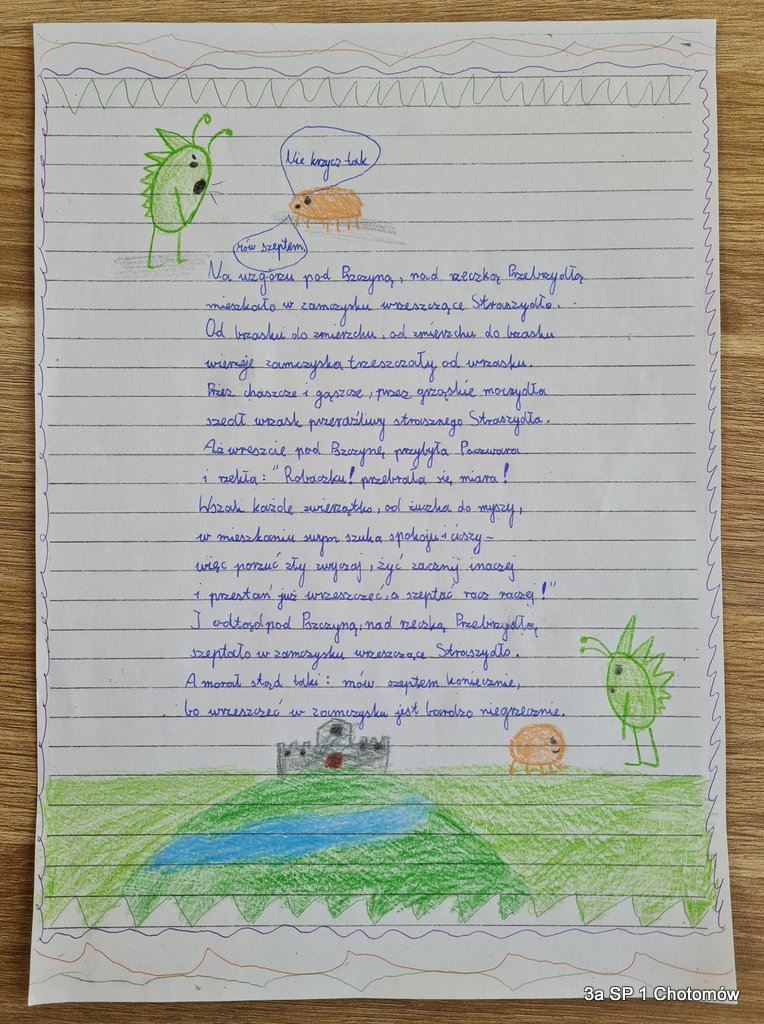 Nie krzycz tak
mów szeptem.
Na wzgórzu pod Pszczyną, nad rzeczką Przebrzydłą
mieszkało w zamczysku wrzeszczące Straszydło.
Od brzasku do zmierzchu, od zmierzchu do brzasku
wierzeje zamczyska trzeszczały od wrzasku.
Przez chaszcze i gąszcze, przez grząskie moczydła
szedł wrzask przeraźliwy strasznego Straszydła.
Aż wreszcie pod Pszczynę przybyła Poczwara
i rzekła: "Robaczku! przebrała się miara!
Wszak każde zwierzątko, od żuczka do myszy,
w mieszkaniu swym szuka spokoju i ciszy -
więc porzuć zły zwyczaj, żyć zacznij inaczej
i przestań już wrzeszczeć, a szeptać racz raczej!"
I odtąd pod Pszczyną, nad rzeczką Przebrzydłą,
szeptało w zamczysku wrzeszczące Straszydło.
A morał stąd taki: mów szeptem koniecznie,
bo wrzeszczeć w zamczysku jest bardzo niegrzecznie.
3a SP 1 Chotomów